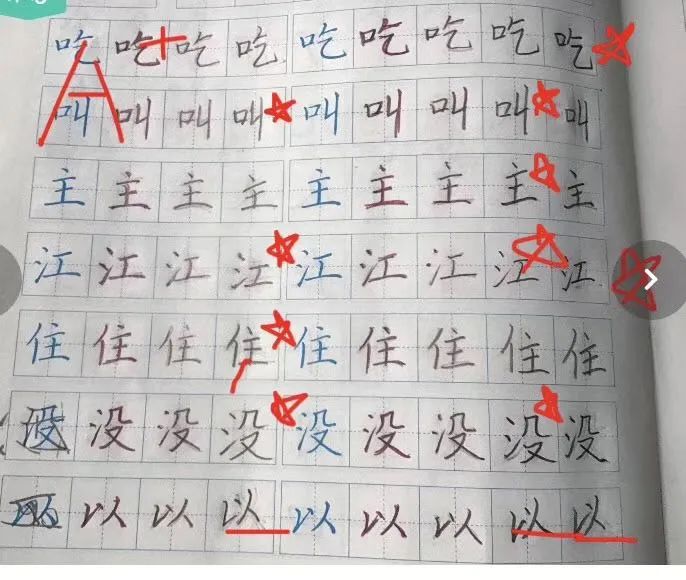 吃吃吃吃吃吃吃吃吃
叫叫叫叫叫叫叫叫叫
主主主主主主主主主
江江江江江江江江江
住住住住住住住住住
没没没没没没没没没
以以以以以以以以
A+